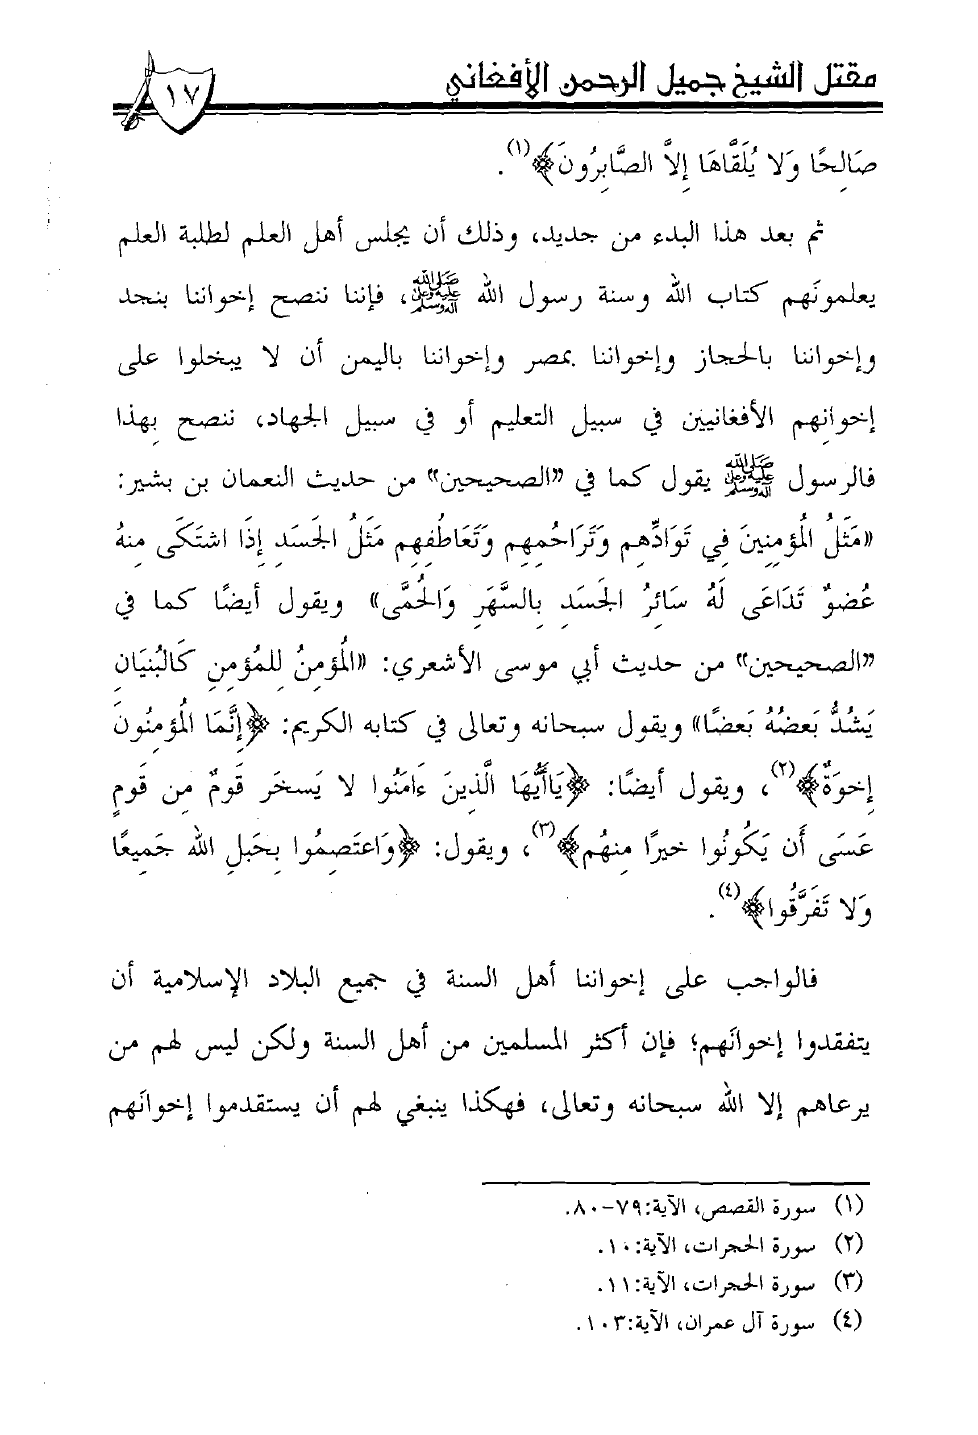 مقتل الشيخ جميل الرحمن الأفغاني
١٧
صَالِحًا وَلا يُلَقَّاهَا إِلاَّ الصَّابِرُونَ﴾(١).
ثم بعد هذا البدء من جديد، وذلك أن يجلس أهل العلم لطلبة العلم
يعلمونَهم كتاب الله وسنة رسول الله ﷺ، فإننا ننصح إخواننا بنجد
وإخواننا بالحجاز وإخواننا بمصر وإخواننا باليمن أن لا يبخلوا على
إخوانِهم الأفغانيين في سبيل التعليم أو في سبيل الجهاد، ننصح بِهذا
فالرسول ﷺ يقول كما في "الصحيحين" من حديث النعمان بن بشير:
«مَثَلُ الْمُؤمِنِينَ فِي تَوَادِّهِم وَتَرَاحُمِهِم وَتَعَاطُفِهِم مَثَلُ الْجَسَدِ إِذَا اشتَكَى مِنهُ
عُضوٌ تَدَاعَى لَهُ سَائِرُ الْجَسَدِ بِالسَّهَرِ وَالْحُمَّى» ويقول أيضًا كما في
"الصحيحين" من حديث أبي موسى الأشعري: «الْمُؤمِنُ لِلمُؤمِنِ كَالبُنيَانِ
يَشُدُّ بَعضُهُ بَعضًا» ويقول سبحانه وتعالى في كتابه الكريم: ﴿إِنَّمَا الْمُؤمِنُونَ
إِخوَةٌ﴾(٢)، ويقول أيضًا: ﴿يَاأَيُّهَا الَّذِينَ ءَامَنُوا لا يَسخَر قَومٌ مِن قَومٍ
عَسَى أَن يَكُونُوا خَيرًا مِنهُم﴾(٣)، ويقول: ﴿وَاعتَصِمُوا بِحَبلِ الله جَمِيعًا
وَلا تَفَرَّقُوا﴾(٤).
فالواجب على إخواننا أهل السنة في جميع البلاد الإسلامية أن
يتفقدوا إخوانَهم؛ فإن أكثر المسلمين من أهل السنة ولكن ليس لهم من
يرعاهم إلا الله سبحانه وتعالى، فهكذا ينبغي لهم أن يستقدموا إخوانَهم
(١) سورة القصص، الآية:٧٩-٨٠.
(٢) سورة الحجرات، الآية:١٠.
(٣) سورة الحجرات، الآية:١١.
(٤) سورة آل عمران، الآية:١٠٣.